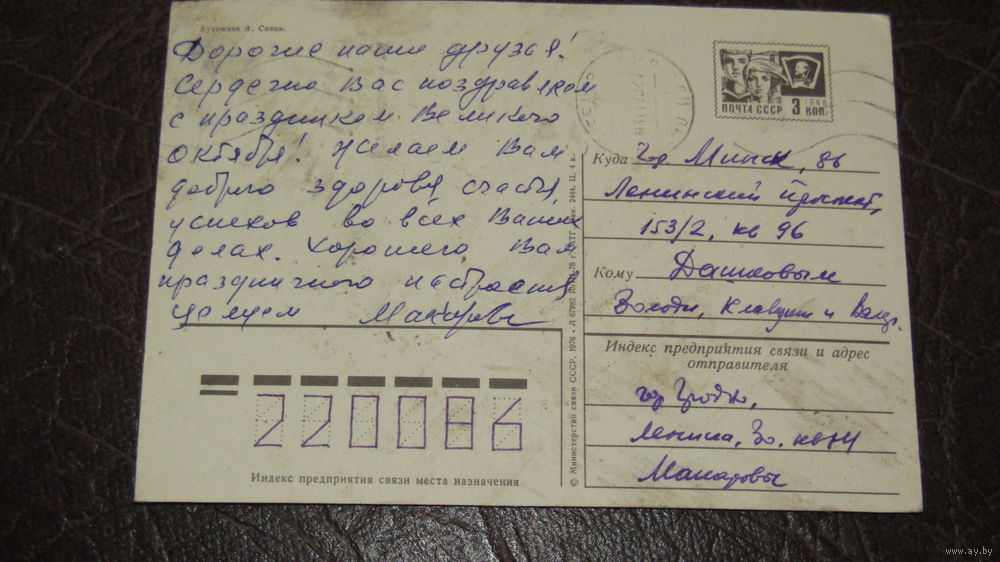 Художник А. Савин.
Дорогие наши друзья!
Сердечно Вас поздравляем
с праздником Великого
Октября! Желаем Вам
доброго здоровья, счастья,
успехов во всех Ваших
делах. Хорошего Вам
праздничного настроения
Целуем Макаровы
ПОЧТА СССР 3 КОП.
1966
Куда Гор Минск, 86
Ленинский проспект,
153/2, кв 96
Кому Дашковым
Володи, Клавдии и
Индекс предприятия связи и адрес
отправителя
гор Гродно,
Ленина, 30, кв
Макаровы
220086
Индекс предприятия связи места назначения
© Министерство связи СССР, 1976
Ц. 4 к.
www.ay.by